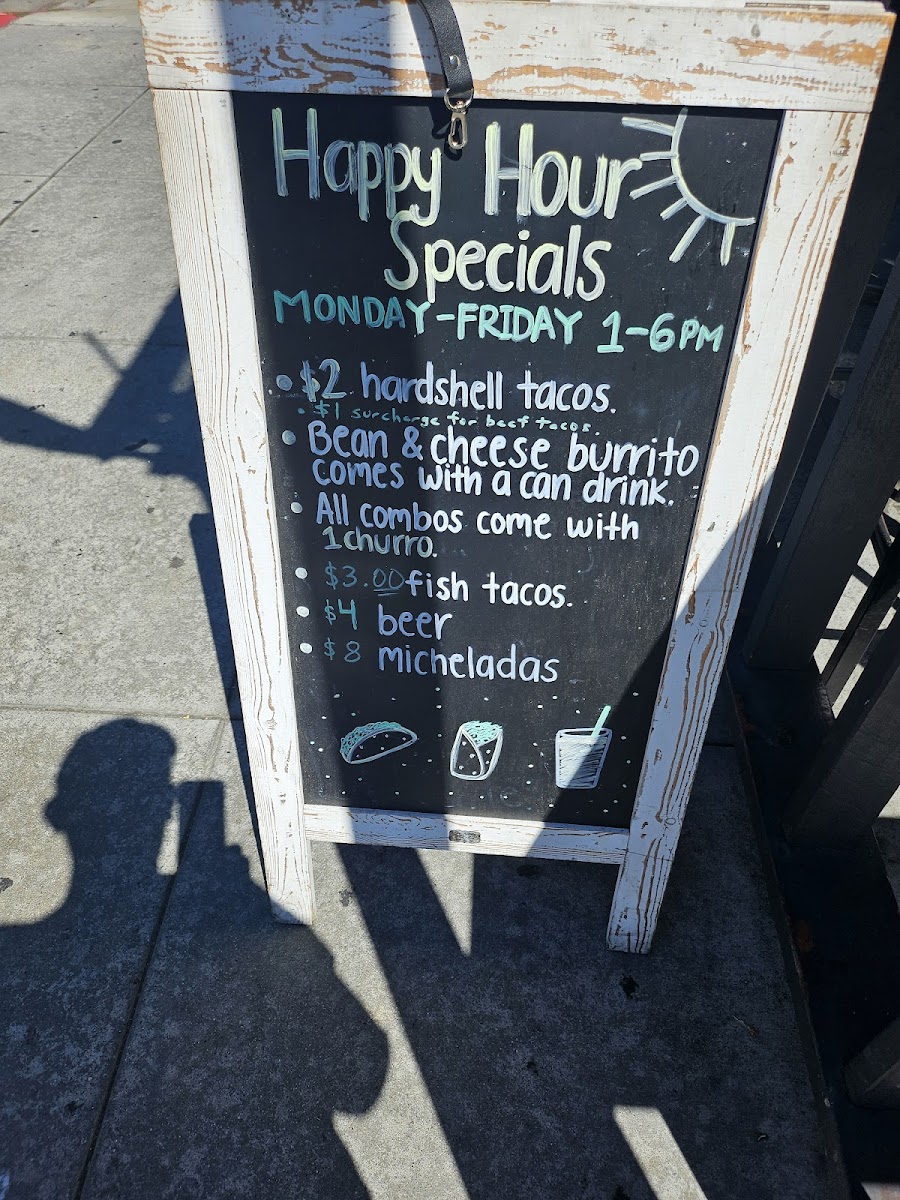 Happy Hour
Specials
MONDAY-FRIDAY 1-6PM
• $2 hardshell tacos.
• $1 surcharge for beef tacos.
• Bean & cheese burrito
comes with a can drink.
• All combos come with
1 churro.
• $3.00 fish tacos.
• $4 beer
• $8 micheladas